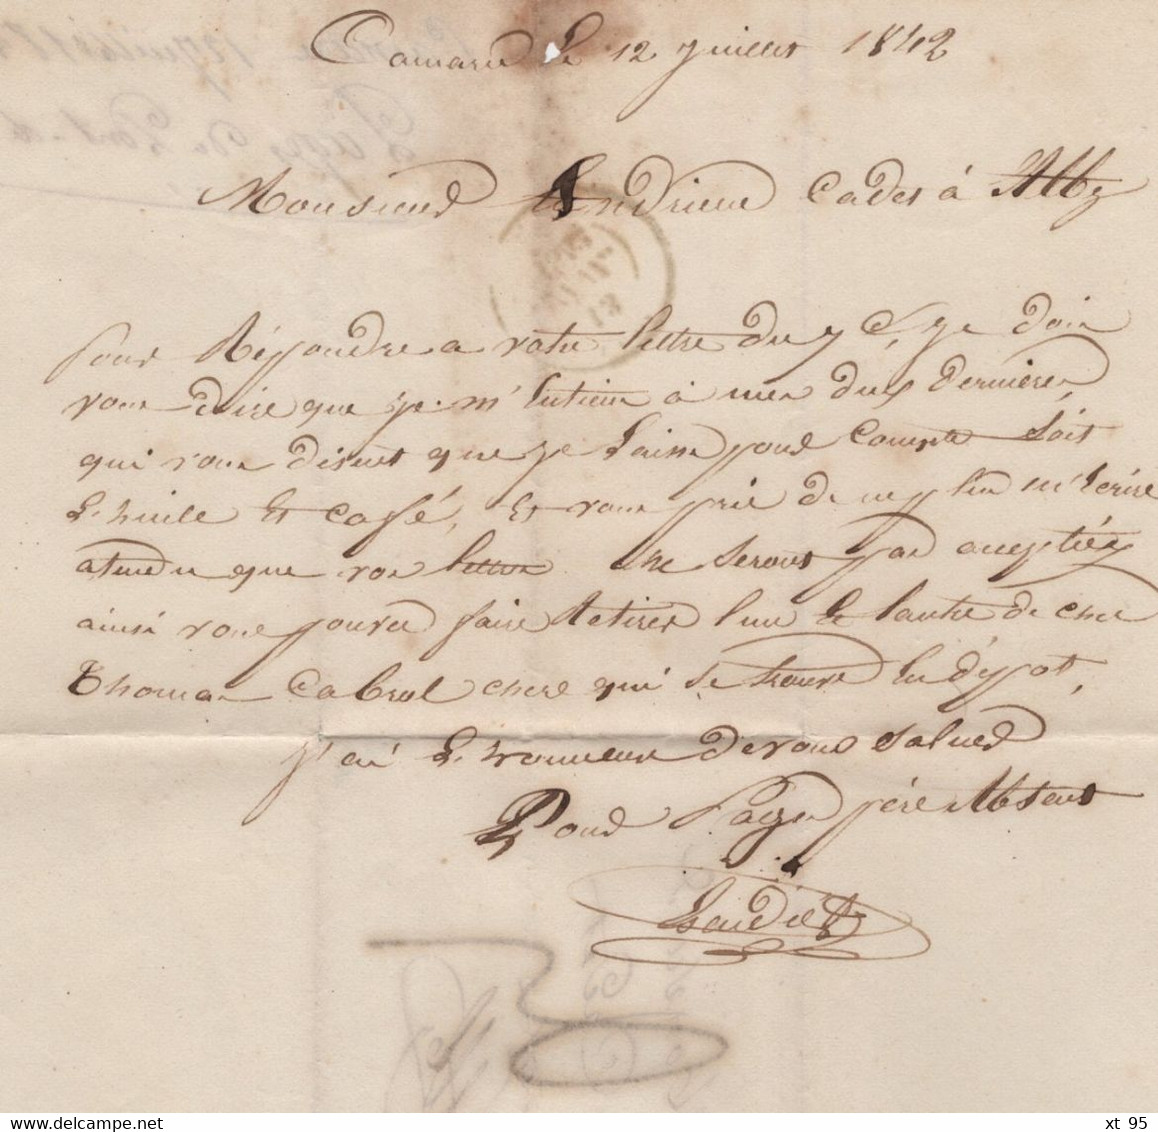 Camarès le 12 Juillet 1842
Monsieur Andrieu Cadet à Alby
pour Répondre a votre lettre du 7 Ct, je dois
vous dire que je m'entiens à mes dus dernieres,
qui vous disent que je laisse pour compte soit
L'huile Et caffé, Et vous prie de ne plus m'Ecrire
atendu que vos lettres ne serons pas acceptiés
ainsi vous pouvez faire Retirer l'un Et lautre de ches
Thomas Cabrol chere qui se trouve En dépot,
J'ai L'honneur de vous saluer
Pour Pages pére Absent
xt 95